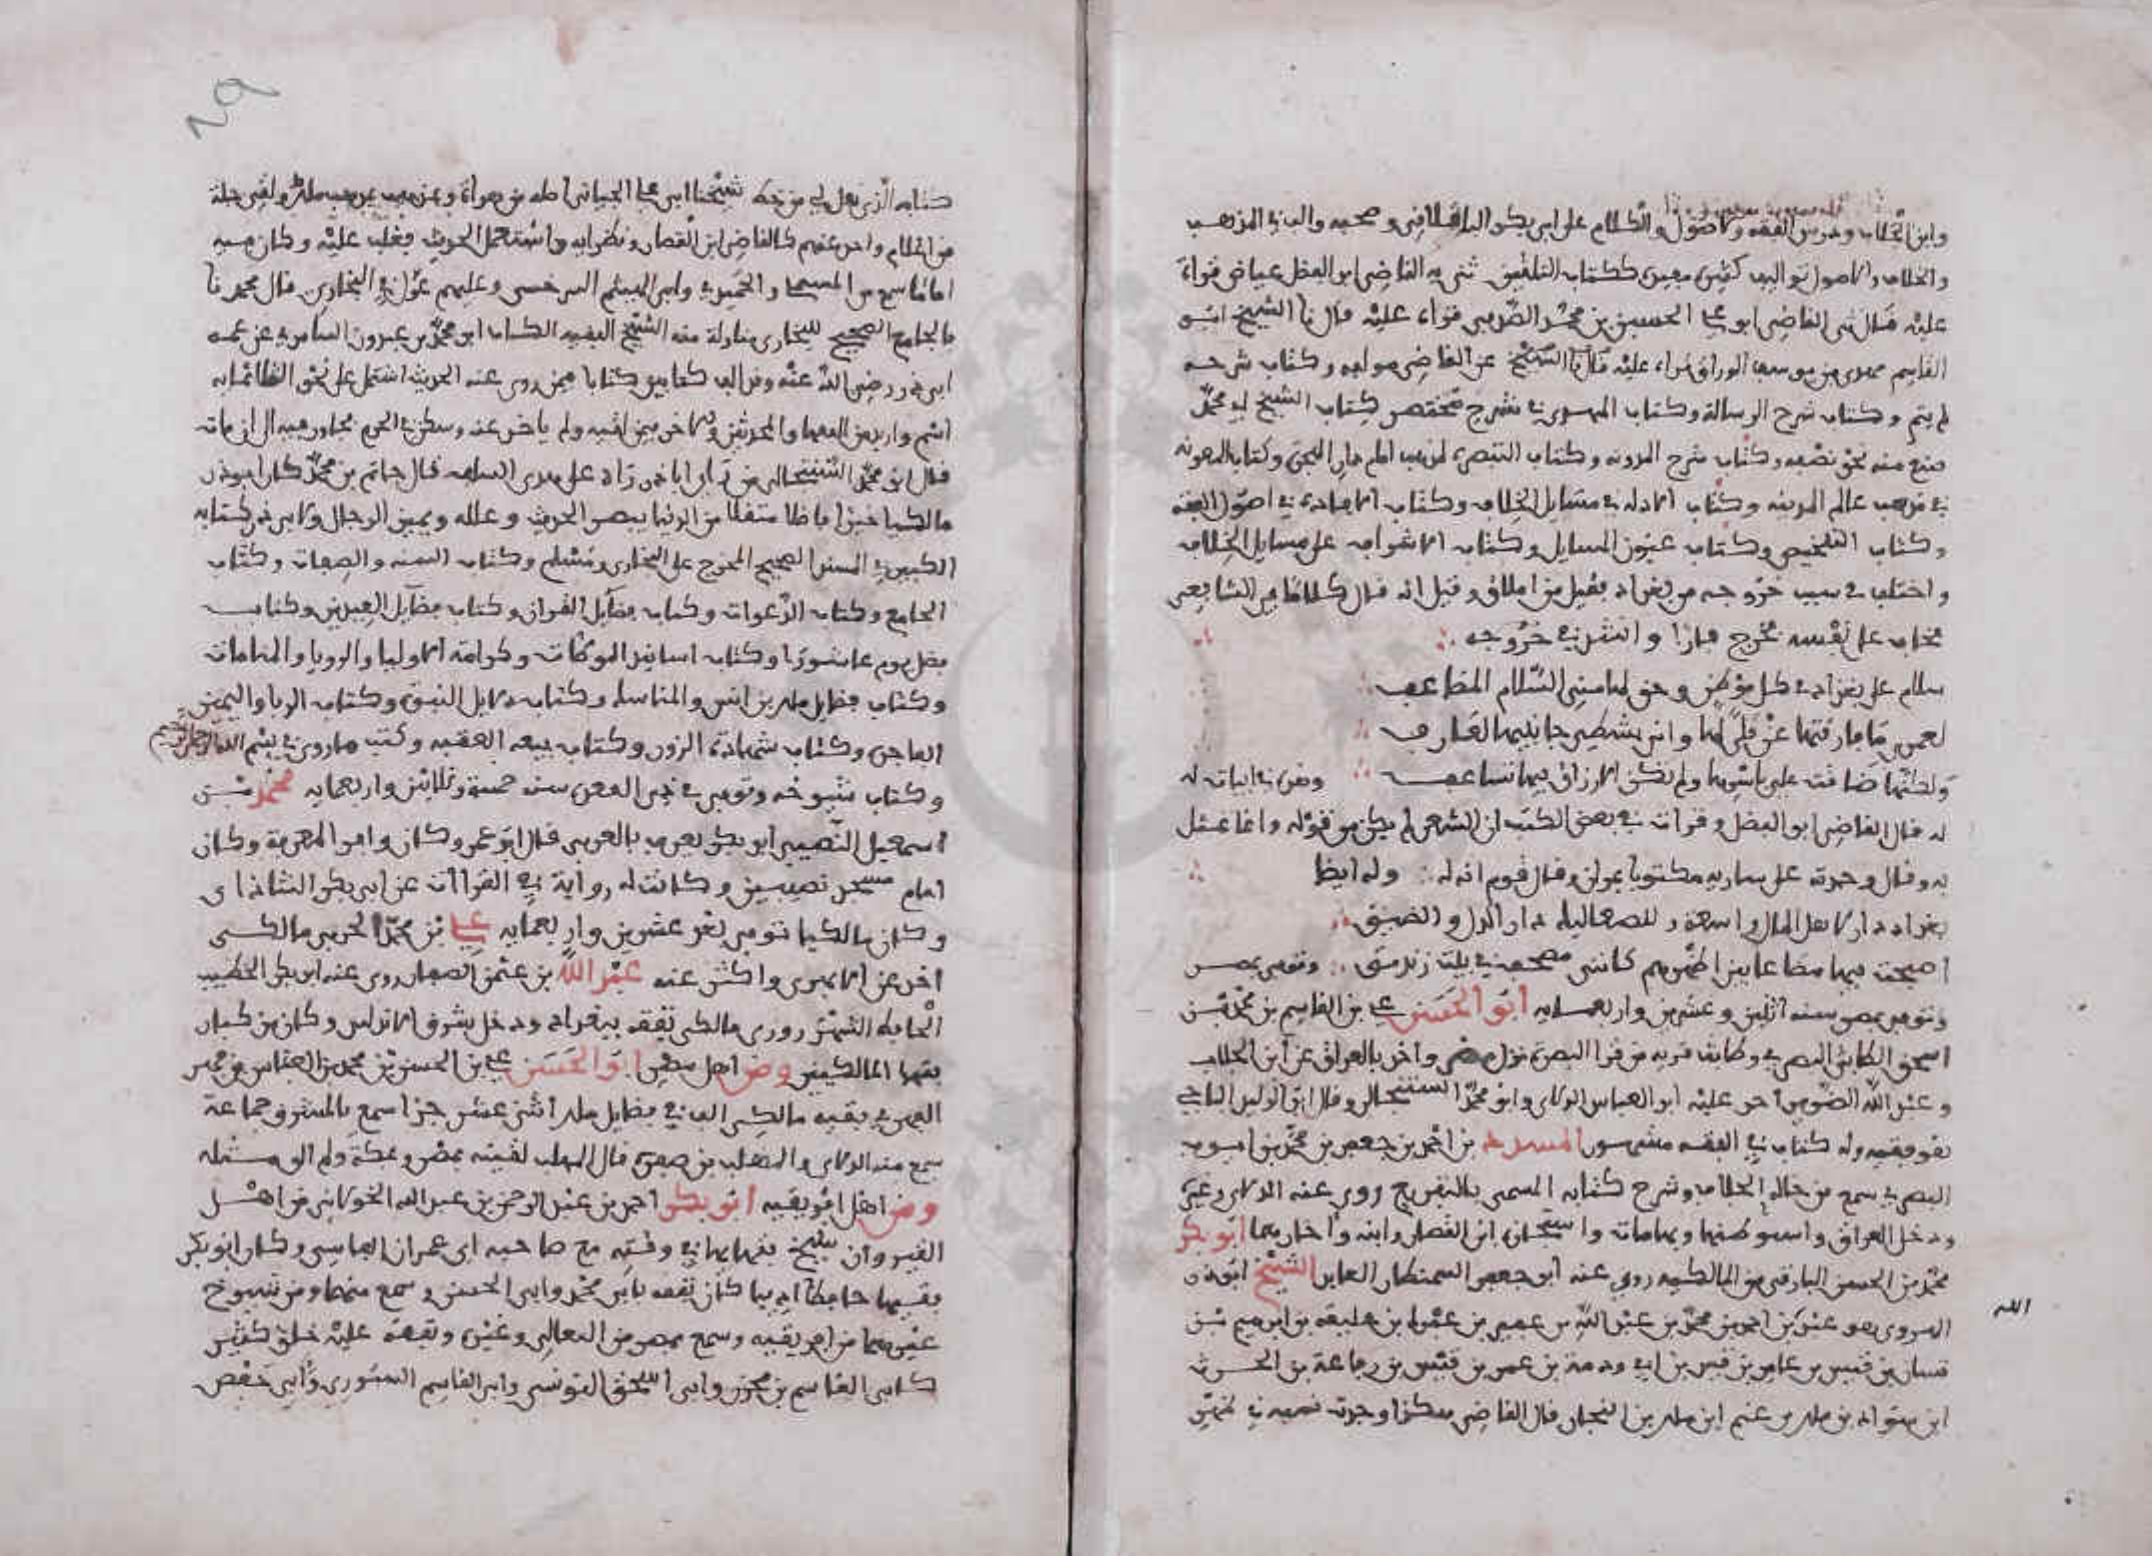 وابن الجلاب ودرس الفقه والاصول والكلام على ابي بكر الباقلاني وصحبه والف في المذهب
والخلاف والاصول تواليف كثيرة مفيدة ككتاب التلقين ثني به القاضي ابو الفضل عياض قراءة
عليه قال ثنى القاضي ابو علي الحسين بن محمد الصدفي قراءة عليه قال نا الشيخ ابو
القاسم مهدي بن يوسف الوراق قراءة عليه قال نا الشيخ عن القاضي مولفه وكتاب شرحه
لم يتم وكتاب شرح الرسالة وكتاب الممهد في شرح مختصر كتاب الشيخ ابي محمد
صنع منه نحو نصفه وكتاب شرح المدونه وكتاب النصرة لمذهب امام دار الهجرة وكتاب المعونه
في مذهب عالم المدينه وكتاب الادله في مسايل الخلاف وكتاب الافادة في اصول الفقه
وكتاب التلخيص وكتاب عيون المسايل وكتاب الاشراف على مسايل الخلاف
واختلف في سبب خروجه من بغداد فقيل من املاق وقيل انه قال كلاما في الشافعي
فخاف على نفسه فخرج فارا وانشد في خروجه
سلام على بغداد في كل موطن وحق لها مني السلام المضاعف
لعمرك ما فارقتها عن قلى لها واني بشطي جانبيها لعارف
ولكنها ضاقت علي باسرها ولم تكن الارزاق فيها تساعف
له قال القاضي ابو الفضل وقرات في بعض الكتب ان الشعر لم يكن من قوله وانما تمثل
به وقال وجدته على سارية مكتوبا وقال قوم انه له وله ايضا
بغداد دار لاهل المال واسعة وللصعاليك دار الذل والضيق
اصبحت فيها مضاعا بين اظهرهم كانني مصحف في بيت زنديق
وتوفي بمصر سنه اثنين وعشرين واربعمايه ابو الحسن علي بن القاسم بن محمد بن
اسحق الطابثي البصري وطابث قريه من قرا البصرة نزل مصر واخذ بالعراق عن ابن الجلاب
وعبد الله الضرير اخذ عليه ابو العباس الدلاي وابو محمد الشنتجالي وقال ابو الوليد الباجي
هو فقيه وله كتاب في الفقه مشهور المسدد بن احمد بن جعفر بن محمد بن ايوب
البصري سمع من خاله الجلاب وشرح كتابه المسمى بالتفريع روى عنه الدلاي وغيره
ودخل العراق واستوطنها وبها مات واستجازه ابن القصار وابنه واجازهما ابو بكر
محمد بن الحسن من المالكيه روى عنه ابو جعفر السمنطار العابد الشيخ ابو ذر
الهروي هو عبد بن احمد بن محمد بن عبد الله بن عفير بن خليفه بن ابرهيم بن
الله
قيس بن عامر بن قيس بن عمر بن قيس بن رفاعة بن الحرث
ابن سواد بن ملك بن غنم ابن ملك بن النجار قال القاضي هكذا وجدت نسبه في
كتابه الذي نقل لي من خط شيخنا ابي علي الجياني اصله من هراة وتمذهب بمذهب ملك ولقي جلة
من اعلام واخذ عنهم كالقاضي ابن القصار ونظرايه واستعمل الحديث فغلب عليه وكان فيه
اماما سمع من المستملي والحموي وابي الهيثم السرخسي وعليهم عول في البخاري قال محمد نا
بالجامع الصحيح للبخاري مناولة منه الشيخ الفقيه ابو محمد بن عبدون عن عمه
ابي ذر رضي الله عنه وقد الف كتابين كتابا فيمن روى عنه الحديث اشتمل على نحو الثلاثمايه
اسم واربعين الفقها والمحدثين والاخر فيمن لقيه ولم ياخذ عنه وسكن في الحرم مجاورا فيه الى ان مات
قال ابو محمد الشنتجالي من راى ابا ذر راه على هدي السلف قال حاتم بن محمد كان ابو ذر
مالكيا خيرا فاضلا متقللا من الدنيا بصيرا بالحديث وعلله ويميز الرجال ولابي ذر كتابه
الكبير في المسند الصحيح المخرج على البخاري ومسلم وكتاب السنه والصفات وكتاب
الجامع وكتاب الدعوات وكتاب فضايل القران وكتاب فضايل العيدين وكتاب
فضل يوم عاشورا وكتاب اسانيد الموطات وكرامة الاوليا والرويا والمنامات
وكتاب فضايل ملك بن انس والمناسك وكتاب دلايل النبوة وكتاب الربا واليمين
الفاجرة وكتاب شهادة الزور وكتاب بيعه العقبه وكتب ما روي في بسم الله الرحمن الرحيم
وكتاب شيوخه وتوفي في ذي القعدة سنه خمسة وثلاثين واربعمايه محمد بن
اسمعيل النصيبي ابو بكر يعرف بالعربي قال ابو عمرو كان وافر المعرفة وكان
امام مسجد نصيبين وكانت له رواية في القراات عن ابي بكر الشاذاي
وكان مالكيا توفي بعد عشرين واربعمايه علي بن محمد الحربي مالكي
اخذ عن الابهري واكثر عنه عبد الله بن عثمن الصفار روى عنه ابو بكر الخطيب
الحافظ مالكي تفقه ببغداد ودخل بشرق الاندلس وكان من كبار
فقها المالكيين ومن اهل مصر ابو الحسن علي بن الحسن بن محمد بن العباس بن فهر
الفهري فقيه مالكي الف في فضايل ملك اثني عشر جزا سمع بالمشرق جماعة
سمع منه الدلاي والمهلب بن صفرة قال المهلب لقيته بمصر ومكة ولم الق مثله
ومن اهل افريقيه ابو بكر احمد بن عبد الرحمن بن عبد الله الخولاني من اهل
القيروان شيخ فقهايها في وقته مع صاحبه ابي عمران الفاسي وكان ابو بكر
فقيها حافظا اديبا كان تفقه بابي محمد وابي الحسن وسمع منهما ومن شيوخ
غيرهما من افريقيه وسمع بمصر من النعالي وغيره وتفقه عليه خلق كثير
كابي القاسم بن محرز وابي اسحق التونسي وابي القاسم السيوري وابي حفص